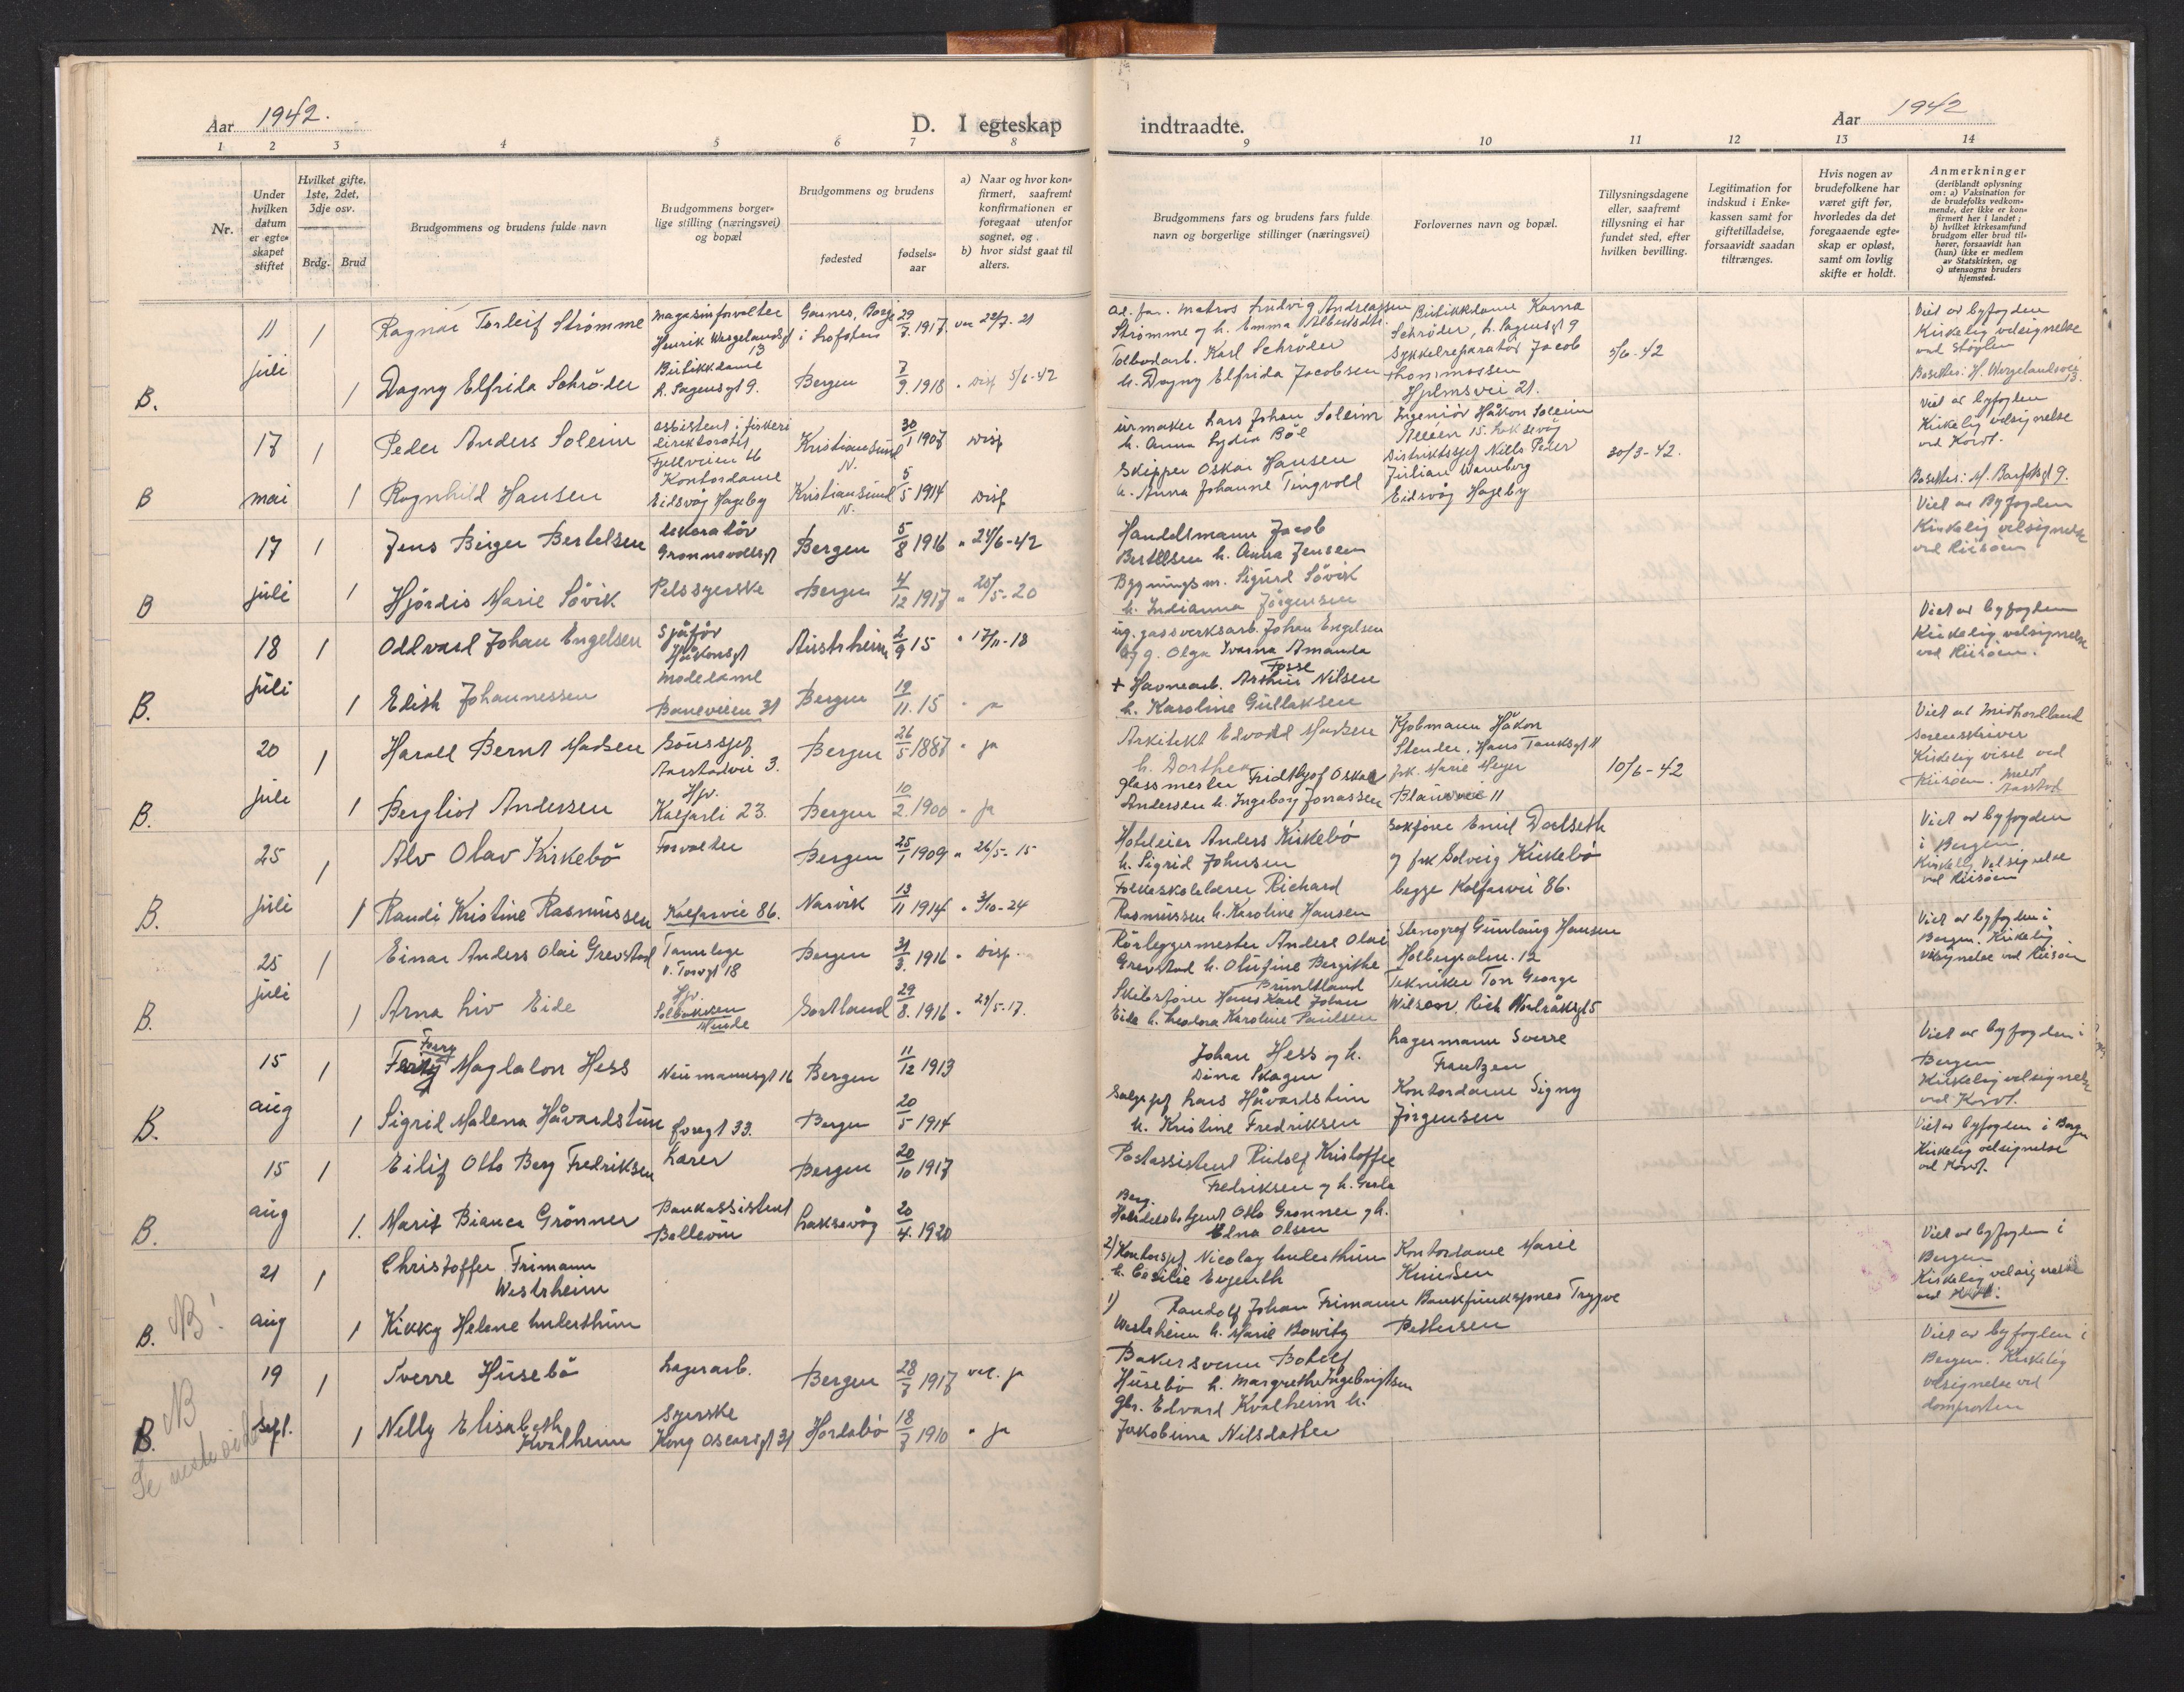 Aar 1942. D. I egteskap
1 2 3 4 5 6 7 8
Nr.
Under hvilken datum er egteskapet stiftet
Hvilket gifte, 1ste, 2det, 3dje osv.
Brdg. Brud
Brudgommens og brudens fulde navn
Brudgommens borgerlige stilling (næringsvei) og bopæl
Brudgommens og brudens
fødested
fødselsaar
a) Naar og hvor konfirmert, saafremt konfirmationen er foregaat utenfor sognet, og
b) hvor sidst gaat til alters.
11 juli
1 Ragnar Torleif Strømme
Magasinforvalter
Henrik Wergelandsgt 13
i Lofoten
29/7. 1917. 22/7. 21
B. 1 Dagny Elfrida Schrøder
Butikkdame
L. Sagensgt 9.
Bergen 7/9. 1918 " Disp 5/6-42
17 mai
1 Peder Anders Soleim
assistent i fiskeri
direktoratet
Fjellveien
Kristiansund N. 30/1 1907 Disp
B 1 Ragnhild Hansen
Kontordame
Eidsvåg Hageby
Kristiansund N. 5/5 1914 Disp
17 juli
1 Jens Birger Bertelsen
dekoratør
Bergen 5/8 1916 " 24/6-42
B 1 Hjördis Marie Søvik
Pelssyerske
Bergen 4/12 1917 " 20/5-20
18 juli
1 Oddvard Johan Engelsen
Sjåfør
Håkonsgt
Austrheim 2/9 15 " 17/11-18
B. 1 Edith Johannessen
Modedame
Baneveien 31
Bergen 19/11. 15 " ja
20 juli
1 Harald Bernt Madsen
Aarstadvei 3.
Bergen 26/5 1887 " ja
B. 1 Bergliot Andersen
Hjv.
Kalfarli 23.
Bergen 10/2. 1900 " ja
25 juli
1 Alv Olav Kirkebø
Forvalter
Bergen 25/1 1909 " 26/5-15
B. 1 Randi Kristine Rasmussen
Kalfarvei 86.
Narvik 13/11 1914 " 3/10-24
25 juli
1 Einar Anders Olai Grevstad
Tannlege
V. Torvgt 18
Bergen 31/3. 1916 " Disp.
B. 1 Arna Liv Eide
Hjv.
Solbakken
Minde
Sortland 29/8. 1916 " 28/5-17.
15 aug
1 Ferry Magdalon Hess
Neumannsgt 16 Bergen 11/12 1913
B. 1 Sigrid Malena Håvardstun
Foregt 33. Bergen 20/5 1914
15 aug
1 Eilif Otto Berg Fredriksen
Lærer
Bergen 20/10 1917
B. 1. Marit Bianca Grønner
Bankassistent
Bellevue
Laksevåg 20/4. 1920
21 aug
1 Christoffer Frimann
Westrheim
NB!
B. 1 Kikky Helene Lulesthun
19 sept.
1 Sverre Husebø
Lagerarb.
Bergen 28/7 1917 vel. ja
NB
B. 1 Nelly Elisabeth
Kvalheim
Syerske
Kong Oscarsgt 31
Hordabø 18/7 1910 " ja
Se neste side
indtraadte. Aar 1942
9 10 11 12 13 14
Brudgommens fars og brudens fars fulde navn og borgerlige stillinger (næringsvei)
Forlovernes navn og bopæl.
Tillysningsdagene eller, saafremt tillysning ei har fundet sted, efter hvilken bevilling.
Legitimation for indskud i Enkekassen samt for giftetilladelse, forsaavidt saadan tiltrænges.
Hvis nogen av brudefolkene har været gift før, hvorledes da det foregaaende egteskap er opløst, samt om lovlig skifte er holdt.
Anmerkninger
(deriblandt oplysning om: a) Vaksination for de brudefolks vedkommende, der ikke er konfirmert her i landet; b) hvilket kirkesamfund brudgom eller brud tilhører, forsaavidt han (hun) ikke er medlem av Statskirken, og c) utensogns bruders hjemsted.
Ad. far. matros Ludvig Andreassen
Strømme og h. Emma Albertsdtr.
Tolbodarb. Karl Schrøder
h. Dagny Elfrida Jacobsen
Butikkdame Karna
Schrøder, L. Sagensgt 9
Sykkelreparatør Jacob
Thommassen
Hjelmsvei 21.
5/6-42
Viet av byfogden
Kirkelig velsignelse
ved Støylen
Bosettes: H. Wergelandsvei 13.
urmaker Lars Johan Soleim
h. Anna Lydia Bøe
Skipper Oskar Hansen
h. Anna Johanne Tingvold
Ingeniør Håkon Soleim
Alléen 15. Laksevåg
Distriktssjef Nills Peder
Julian Warnberg
Eidsvåg Hageby
30/3-42.
Viet av byfogden
Kirkelig velsignelse
ved Kordt.
Handelsmann Jacob
Bertelsen h. Anna Jensen
Bygningsm. Sigurd Søvik
h. Indianna Jørgensen
Viet av Byfogden
Kirkelig velsignelse
ved Riisøen
ug. gassverksarb. Johan Engelsen
og g. Olga Ivarna Amanda
Fosse
+ Havnearb. Arthur Nilsen
h. Karoline Gullaksen
Viet av byfogden
Kirkelig velsignelse
ved Riisøen.
Arkitekt Edvard Madsen
h. Dorthea
Glassmester Fridthjof Oskar
Andersen h. Ingeborg Jonassen
Kjøbmann Håkon
Stender, Hans Tanksgt 11
frk. Marie Meyer
10/6-42
Viet av Midhordland
Sorenskriver
Kirkelig viset ved
Riisøen. meldt
Aarstad
Hoteleier Anders Kirkebø
h. Sigrid Johnsen
Folkeskolelærer Richard
Rasmussen h. Karoline Hansen
Sakfører Emil Dalseth
og frk Solveig Kirkebø
begge Kalfarvei 86.
Viet av byfogden
i Bergen
Kirkelig Velsignelse
ved Riisøen
Rørleggermester Anders Olai
Grevstad h. Olufine Bergithe
Skibsfører Hans Karl Johan
Eide h. Theodora Karoline Paulsen
Stenograf Gunlaug Hansen
Holbergsalm. 12
Tekniker Tom George
Wilson, Rich Nordråksgt 5
Viet av byfogden i
Bergen. Kirkelig
velsignelse ved Riisøen
Johan Hess og h.
Dina Skagen
Salgssjef Lars Håvardstun
h. Kristine Fredriksen
Lagermann Sverre
Frantzen
Kontordame Signy
Jørgensen
Viet av byfogden i
Bergen
Kirkelig velsignelse
ved Kordt.
Postassistent Rudolf Kristoffer
Fredriksen og h. Gerda
Berg.
Handelsbetjent Otto Grønner og h.
Elna Olsen
Viet av byfogden i Bergen
Kirkelig velsignelse
ved Kordt.
2) Kontorsjef Nicolay Lulesthun
h. Cecilie Evjenth
1) Randolf Johan Frimann
Westrheim h. Marie Bowitz
Kontordame Marie
Knudsen
Bankfunksjonær Trygve
Pettersen
Viet av byfogden i
Bergen
Kirkelig velsignelse
ved Kordt.
Bakersvenn Botolf
Husebø h. Margrethe Ingebrigtsen
Gbr. Edvard Kvalheim h.
Jakobina Nilsdatter
Viet av byfogden i
Bergen. Kirkelig
velsignelse ved
domprosten